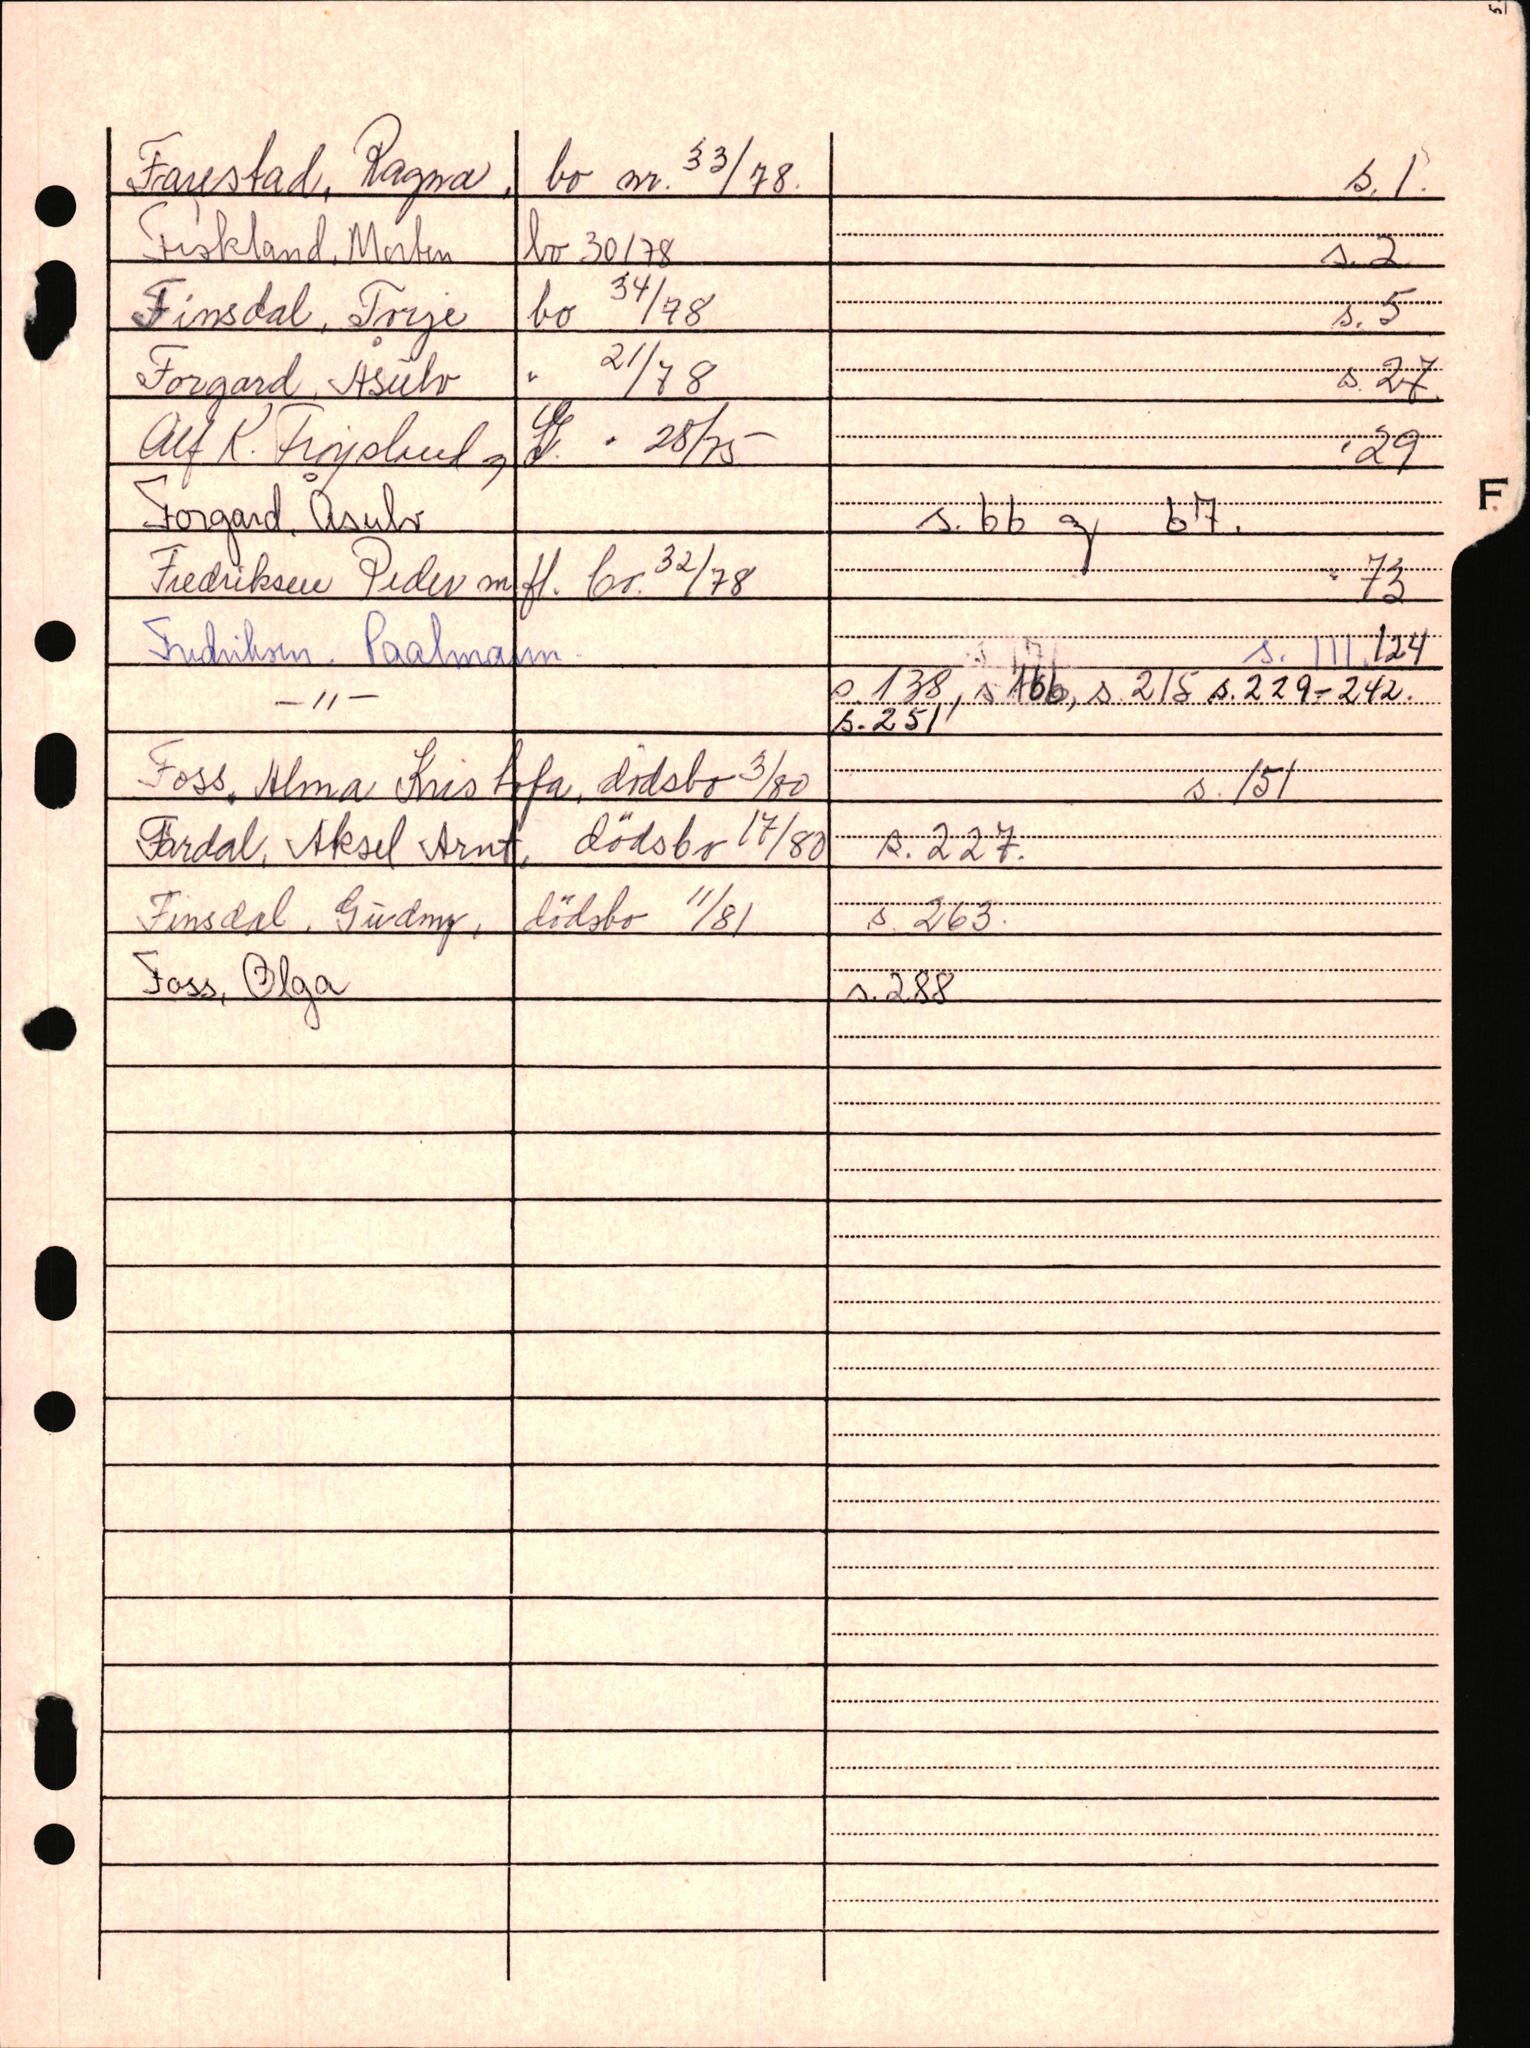 Farestad, Ragna, bo nr. 33/78. s. 1.
Fiskland, Morten bo 30/78 s. 2
Finsdal, Torje bo 34/78 s. 5
Forgard, Åsulv " 21/78 s. 27
Alf K. Frøysland og " 28/75 " 29
Forgard, Åsulv s. 66 og 67.
Fredriksen Peder m.fl. bo. 32/78 " 73
Fredriksen, Paalmann. s. 111, 124
-"- s. 138, s 166, s. 215 s. 229-242.
s. 251
Foss, Alma Kristofa, dödsbo 3/80 s. 151
Fardal, Aksel Arnt, dödsbo 17/80 s. 227.
Finsdal, Gudny, dödsbo 11/81 s. 263.
Foss, Olga s. 288
F